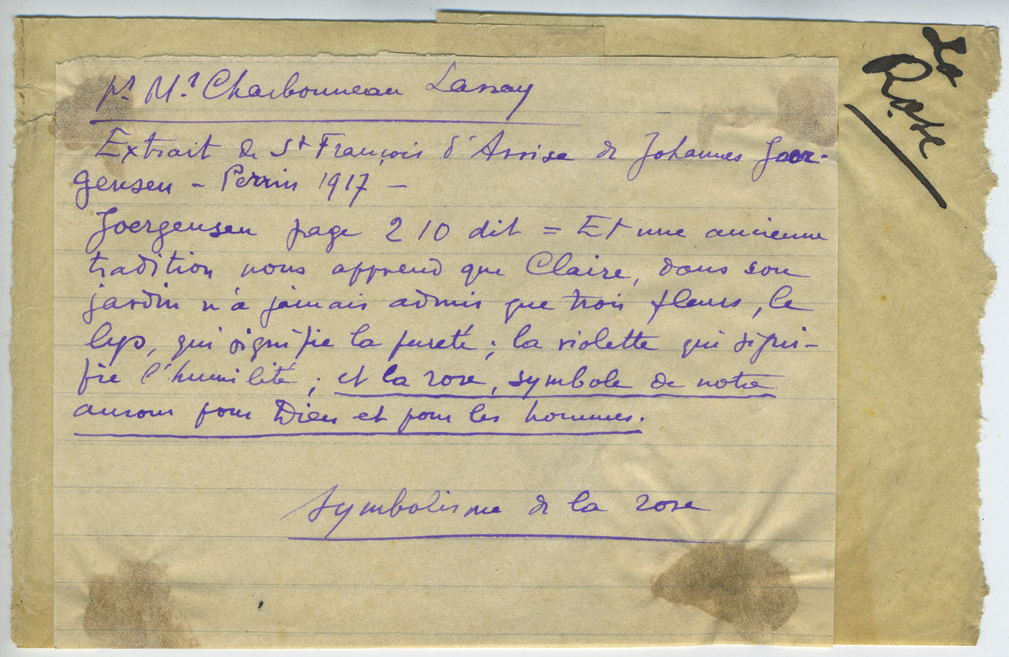 La
Rose
pr Mr Charbonneau Lassay
Extrait de St François d'Assise de Johannes Joer-
gensen - Perrin 1917 -
Joergensen page 210 dit = Et une ancienne
tradition nous apprend que Claire, dans son
jardin n'a jamais admis que trois fleurs, le
lys, qui signifie la pureté ; la violette qui signi-
fie l'humilité ; et la rose, symbole de notre
amour pour Dieu et pour les hommes.
Symbolisme de la rose